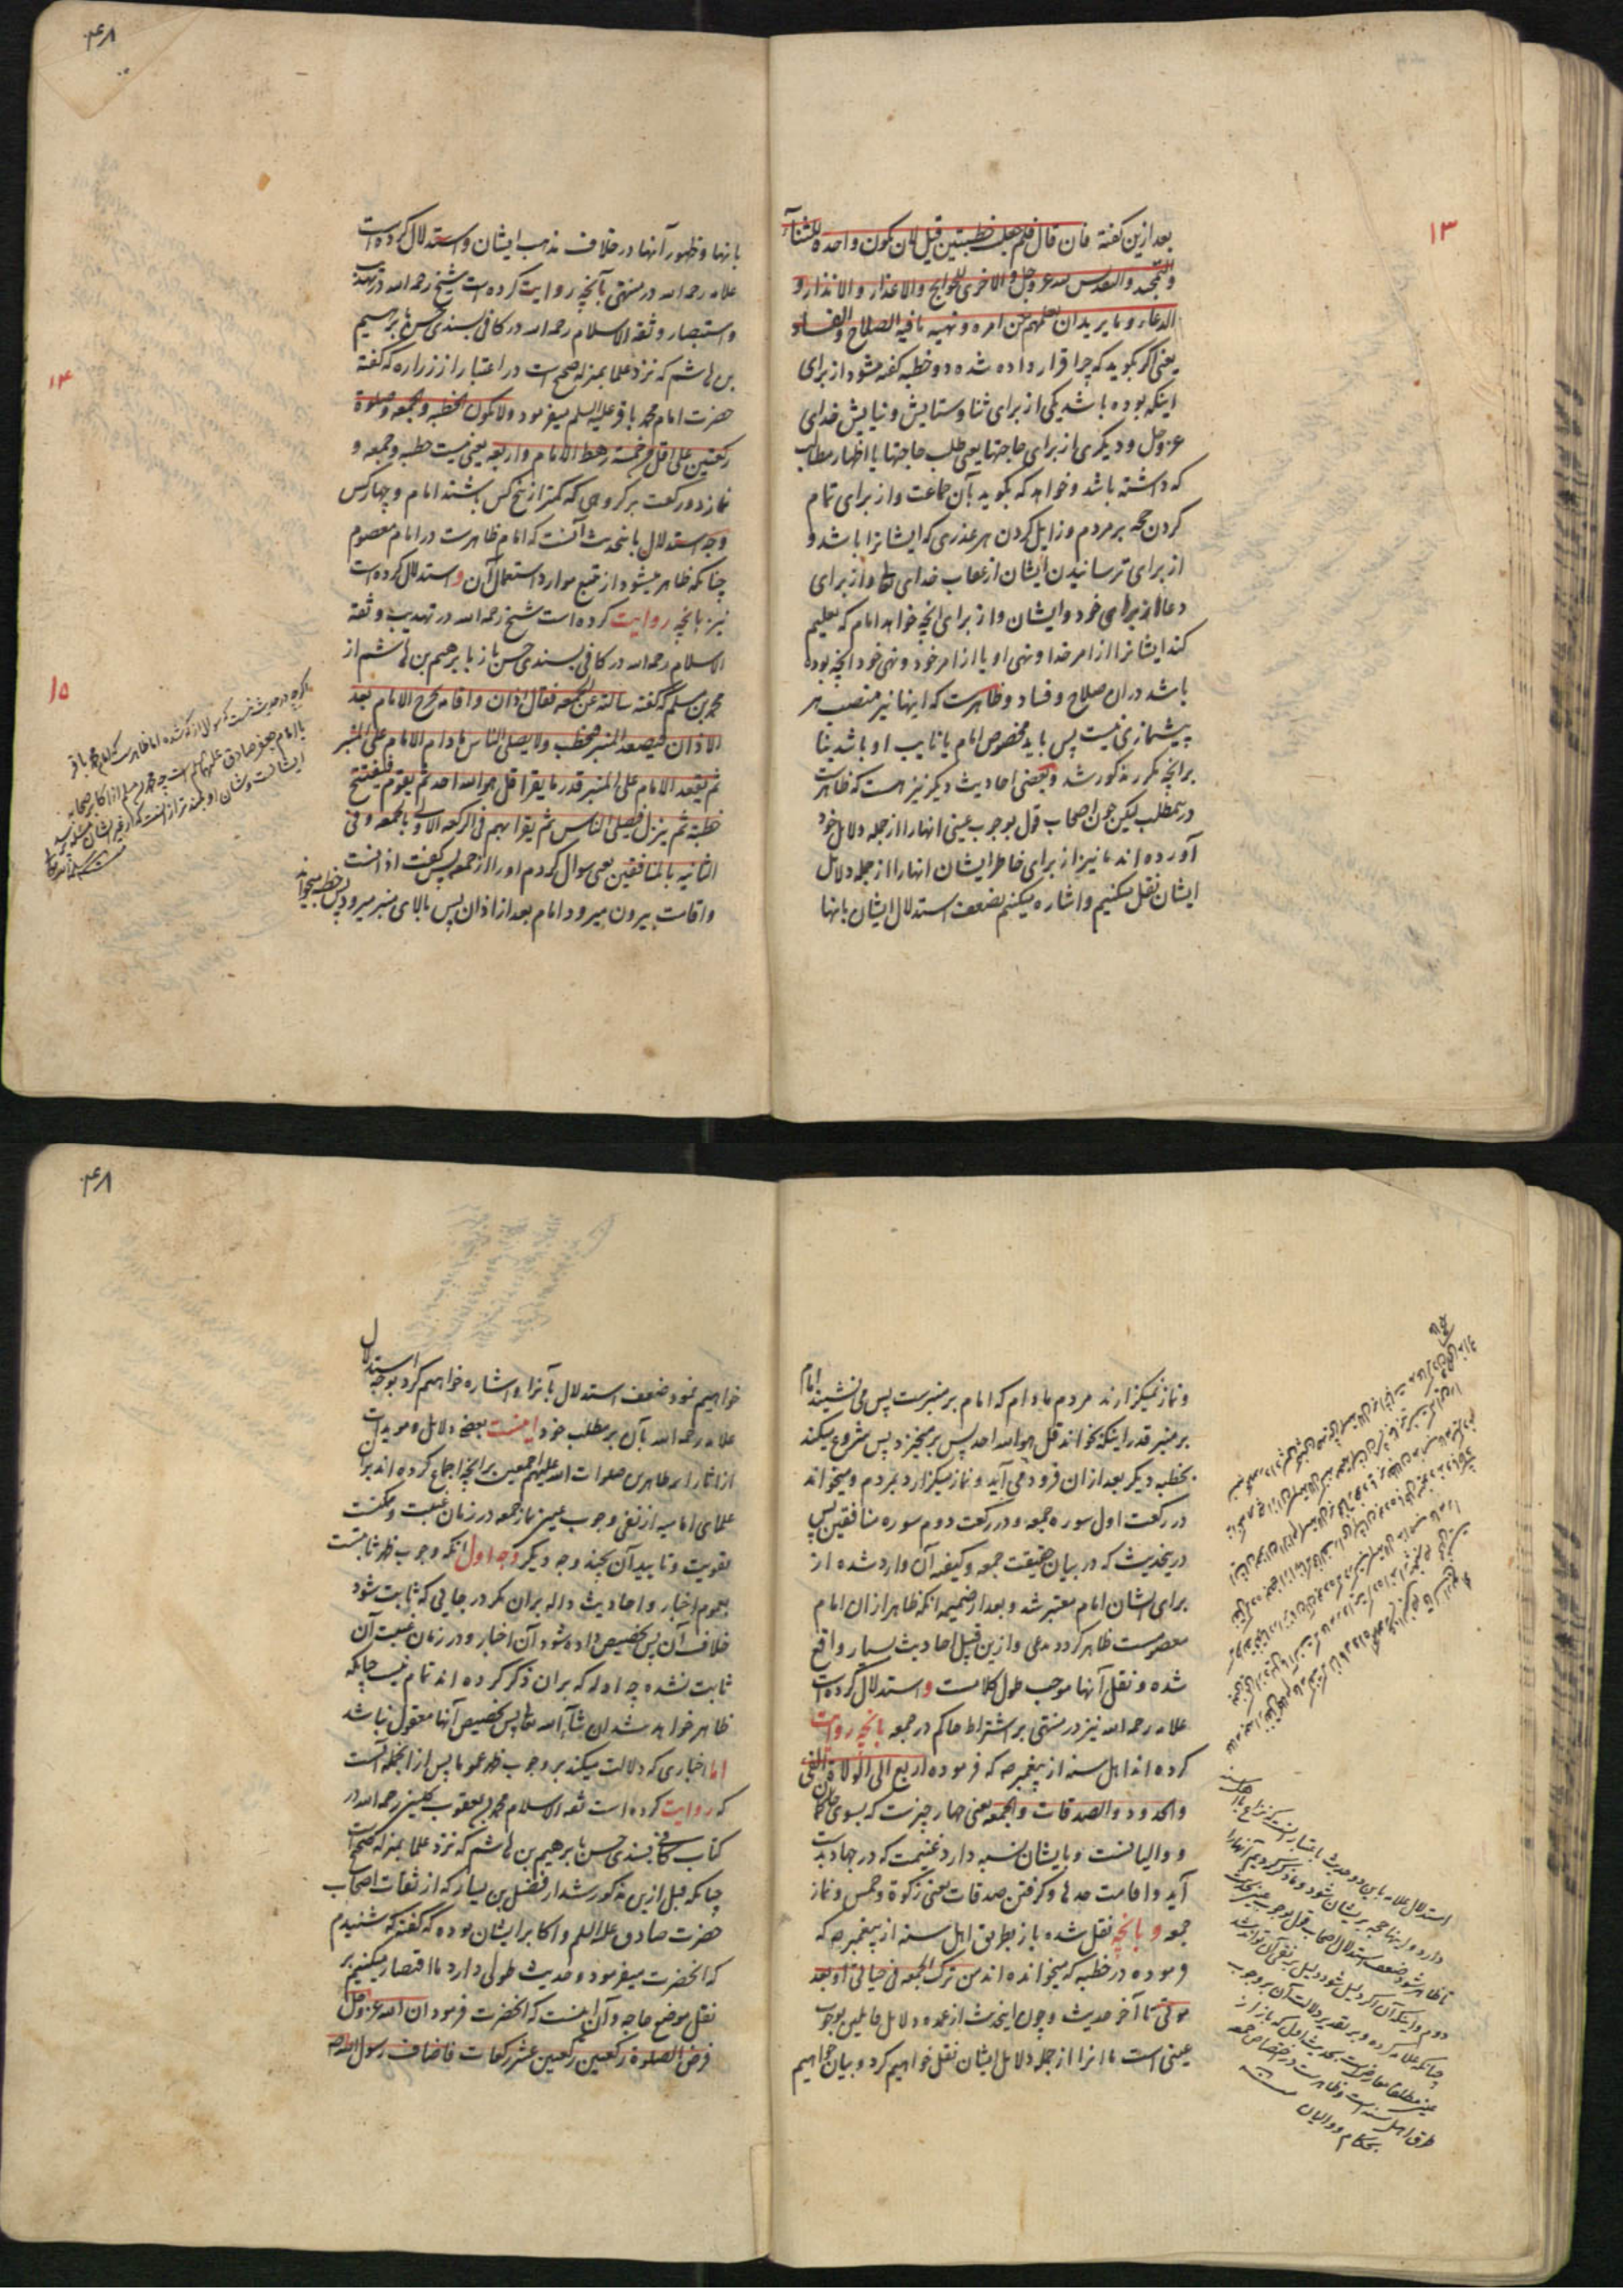 ۱۳
بعد ازین گفته فان قال فلم جعلت خطبتین قیل لان تکون واحدة للثنآء
والتمجید والتقدیس لله عز وجل والاخری للحوایج والاعذار والانذار و
الدعاء و ما یرید ان یعلمهم من امره و نهیه ما فیه الصلاح والفساد
یعنی اگر بگوید که چرا قرار داده شده دو خطبه گفته میشود از برای
اینکه بوده باشد یکی از برای ثنا و ستایش و نیایش خدای
عز وجل و دیگری از برای حاجتها یعنی طلب حاجتها یا اظهار مطالب
که داشته باشد و خواهد که بگوید بآن جماعت و از برای تمام
کردن حجه بر مردم و زایل کردن هر عذری که ایشانرا باشد و
از برای ترسانیدن ایشان از عقاب خدای و از برای
دعا از برای خود و ایشان و از برای انچه خواهد امام که تعلیم
کند ایشانرا از امر خدا و نهی او یا از امر خود و نهی خود انچه بوده
باشد در آن صلاح و فساد و ظاهرست که اینها نیز منصب هر
پیشنمازی نیست پس باید مخصوص امام یا نایب او باشد بنا
بر انچه مکرر مذکور شد و بعضی احادیث دیگر نیز هست که ظاهرست
درین مطلب لیکن چون اصحاب قول بوجوب عینی انها را از جمله دلایل خود
آورده اند ما نیز از برای خاطر ایشان انها را از جمله دلایل
ایشان نقل میکنیم و اشاره میکنیم بضعف استدلال ایشان بانها
۴۸
بانها و ظهور آنها در خلاف مذهب ایشان و استدلال کرده است
علامه رحمه الله در منتهی بآنچه روایت کرده است شیخ رحمه الله در تهذیب
و استبصار و ثقة الاسلام رحمه الله در کافی بسندی حسن بابرهیم
بن هاشم که نزد علما بمنزله صحیح است در اعتبار از زراره که گفته
حضرت امام محمد باقر علیه السلم میفرمود ولا تکون الخطبه والجمعه و صلوة
رکعتین علی اقل من خمسة رهط الامام واربعه یعنی نیست خطبه و جمعه و
نماز دو رکعت بر گروهی که کمتر از پنج کس باشند امام و چهار کس
وجه استدلال باینحدیث آنست که امام ظاهرست در امام معصوم
چنانکه ظاهر میشود از تتبع موارد استعمال آن و استدلال کرده است
نیز بانچه روایت کرده است شیخ رحمه الله در تهذیب و ثقة
الاسلام رحمه الله در کافی بسندی حسن باز بابرهیم بن هاشم از
محمد بن مسلم که گفته سالته عن الجمعه فقال اذان و اقامه یخرج الامام بعد
الاذان فیصعد المنبر فیخطب ولا یصلی الناس مادام الامام علی المنبر
ثم یقعد الامام علی المنبر قدر ما یقرا قل هو الله احد ثم یقوم فیفتتح
خطبته ثم ینزل فیصلی بالناس ثم یقرا بهم فی الرکعه الاولی بالجمعه و فی
الثانیه بالمنافقین یعنی سوال کردم او را از جمعه پس گفت اذانست
و اقامت بیرون میرود امام بعد از اذان پس بالای منبر میرود پس خطبه میخواند
۱۴
۱۵
اگرچه در حدیث نیست که مسؤل از که شده اما ظاهرست که امام محمد باقر
یا امام جعفر صادق علیهما السلم است چه محمد بن مسلم از اکابر صحابه
ایشانست و شان او بلندتر از آنست که از غیر ایشان مسئله پرسد
و نماز نمیگزارند مردم مادام که امام بر منبرست پس می نشیند امام
بر منبر قدر اینکه بخواند قل هو الله احد پس برمیخیزد پس شروع میکند
بخطبه دیگر بعد از ان فرود می آید و نماز میگزارد بمردم و میخواند
در رکعت اول سوره جمعه و در رکعت دوم سوره منافقین پس
درینحدیث که در بیان حقیقت جمعه و کیفیه آن وارد شده از
برای ایشان امام معتبر شد و بعد از ضمیمه انکه ظاهر از ان امام
معصومست ظاهر گردد مدعی و ازین قبیل احادیث بسیار واقع
شده و نقل آنها موجب طول کلامست و استدلال کرده است
علامه رحمه الله نیز در منتهی بر اشتراط حاکم در جمعه بانچه روایت
کرده اند اهل سنه از پیغمبر صه که فرموده اربع الی الولاة الفی
والحدود والصدقات والجمعه یعنی چهار چیزست که بسوی حاکمان
و والیانست و بایشان نسبه دارد غنیمت که در جهاد بدست
آید و اقامت حدها و گرفتن صدقات یعنی زکوة و خمس و نماز
جمعه و بانچه نقل شده باز بطریق اهل سنه از پیغمبر صه که
فرموده در خطبه که میخوانده اند من ترک الجمعه فی حیاتی او بعد
موتی تا آخر حدیث و چون اینحدیث از عمده دلایل قایلین بوجوب
عینی است ما انرا از جمله دلایل ایشان نقل خواهیم کرد و بیان خواهیم
استدلال علامه باین دو حدیث باعتبار اینست که نزاع با اهل سنه
دارد و اینها حجه بر ایشان میشود و ما ذکر کردیم آنها را
تا ظاهر شود ضعف استدلال اصحاب قول بوجوب عینی بحدیث
دوم و اینکه آن اگر دلیل شود دلیل بر نفی آن تواند شد
چنانکه علامه کرده و بر تقدیر دلالت آن بر وجوب
عینی مطلقا معارض است بحدیث اول که باز از
طرق اهل سنه است و ظاهرست در اختصاص جمعه
بحکام و والیان
۴۸
خواهیم نمود ضعف استدلال بآنرا و اشاره خواهیم کرد بوجه استدلال
علامه رحمه الله بآن بر مطلب خود اینست بعضی دلایل و مویدات
از اثار ائمه طاهرین صلوات الله علیهم اجمعین بر انچه اجماع کرده اند بران
علمای امامیه از نفی وجوب عینی نماز جمعه در زمان غیبت و ممکنست
تقویت و تایید آن بچند وجه دیگر وجه اول انکه وجوب ظهر ثابتست
بعموم اخبار و احادیث داله بران مگر در جایی که ثابت شود
خلاف آن پس تخصیص داده شود آن اخبار و در زمان غیبت آن
ثابت نشده چه ادله که بران ذکر کرده اند تمام نیست چنانکه
ظاهر خواهد شد ان شآء الله تعالی پس تخصیص آنها معقول نباشد
اما اخباری که دلالت میکند بر وجوب ظهر عموما پس از انجمله آنست
که روایت کرده است ثقه الاسلام محمد بن یعقوب کلینی رحمه الله در
کتاب کافی بسندی حسن بابرهیم بن هاشم که نزد علما بمنزله صحیح است
چنانکه قبل ازین مذکور شد از فضیل بن یسار که از ثقات اصحاب
حضرت صادق علیه السلم و اکابر ایشان بوده که گفته که شنیدم
که انحضرت میفرمود و حدیث طولی دارد ما اقتصار میکنیم بر
نقل موضع حاجه و آن اینست که انحضرت فرمود ان الله عز وجل
فرض الصلوة رکعتین رکعتین عشر رکعات فاضاف رسول الله صه